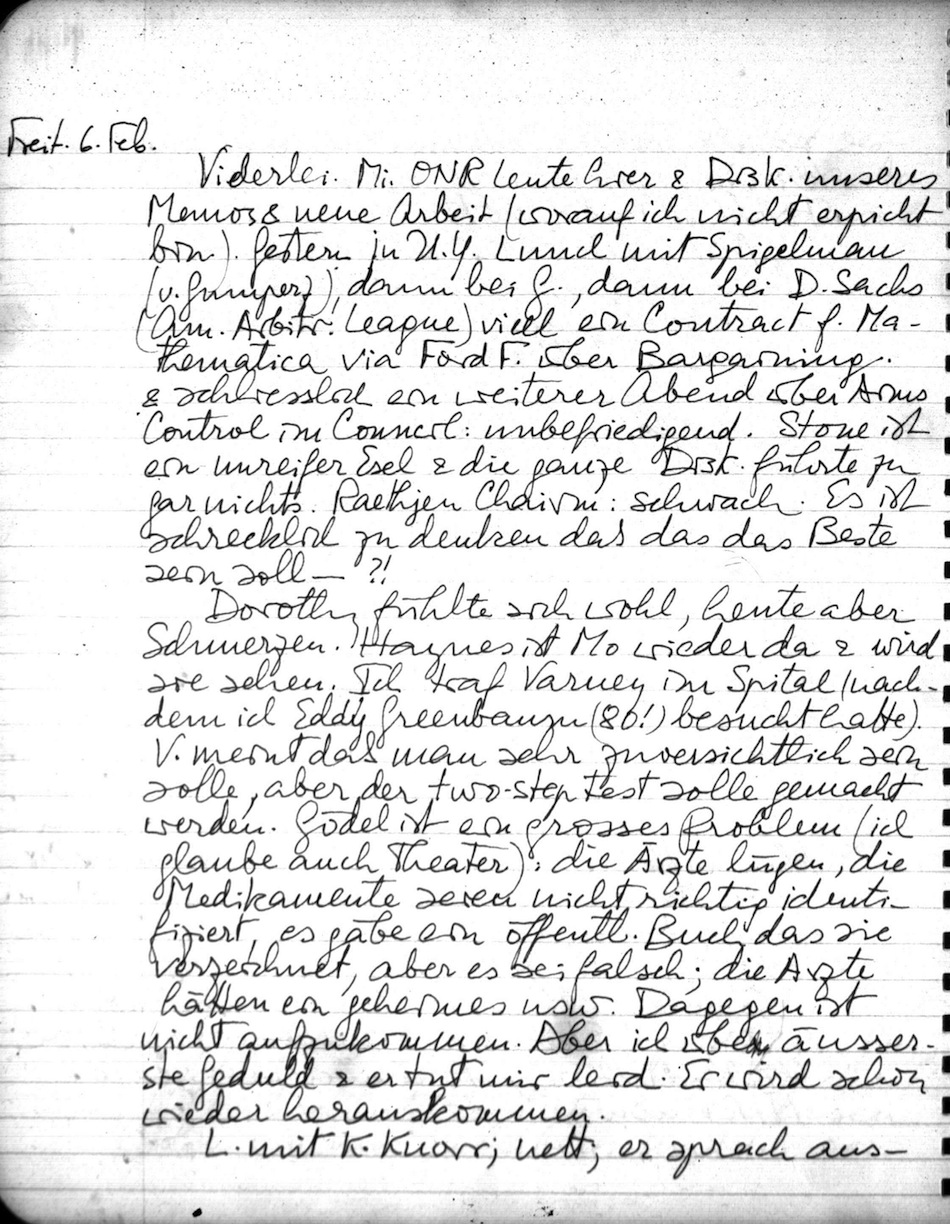 Freit. 6. Feb.
Viderlei. Mi. ONR Leute hier & Disk. unseres
Memos & neue Arbeit (worauf ich nicht erpicht
bin). Gestern in N.Y. Lunch mit Spigelman
(v. Gumperz), dann bei G., dann bei D. Sachs
(Am. Arbitr. League) viell ein Contract f. Ma-
thematica via Ford F. über Bargaining.
& schliesslich ein weiterer Abend über Arms
Control im Council: unbefriedigend. Stone ist
ein unreifer Esel & die ganze Disk. führte zu
gar nichts. Raethjen Chairm: schwach. Es ist
schrecklich zu denken daß das das Beste
sein soll — ?!
Dorothy fühlte sich wohl, heute aber
Schmerzen. Haynes ist Mo wieder da & wird
sie sehen. Ich traf Varney im Spital (nach-
dem ich Eddy Greenbaum (80!) besucht hatte).
V. meint daß man sehr zuversichtlich sein
solle, aber der two-step test solle gemacht
werden. Gödel ist ein grosses Problem (ich
glaube auch Theater): die Ärzte lügen, die
Medikamente seien nicht richtig identi-
fiziert, es gäbe ein öffentl. Buch das sie
verzeichnet, aber es sei falsch; die Ärzte
hätten ein geheimes usw. Dagegen ist
nicht aufzukommen. Aber ich übe äusser-
ste Geduld & er tut mir leid. Er wird schon
wieder herauskommen.
L. mit K. Knorr; nett; er sprach aus-